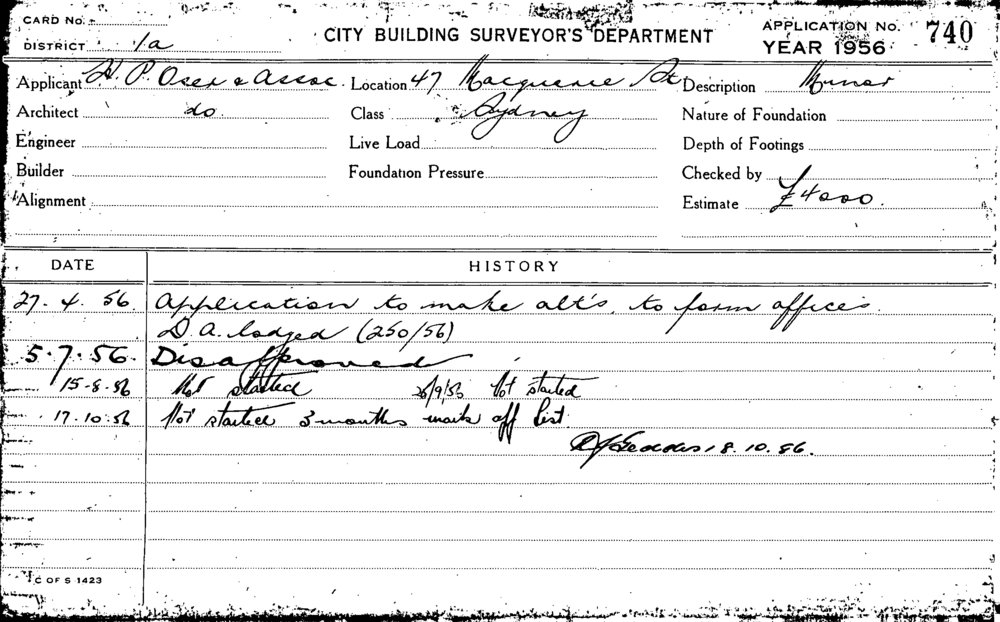 CARD No.
DISTRICT 1a
CITY BUILDING SURVEYOR'S DEPARTMENT
APPLICATION No. 740
YEAR 1956
Applicant H. P. Oser & Assoc. Location 47 Macquarie St Description Minor
Architect do Class Sydney Nature of Foundation
Engineer Live Load Depth of Footings
Builder Foundation Pressure Checked by
Alignment Estimate £4000.
DATE HISTORY
27. 4. 56 Application to make alt's, to form offices.
D.A. lodged (250/56)
5.7.56. Disapproved
15-8-56 Not started 26/9/56 Not started
17.10.56 Not started 3 months mark off list.
18.10.56.
C OF S 1423